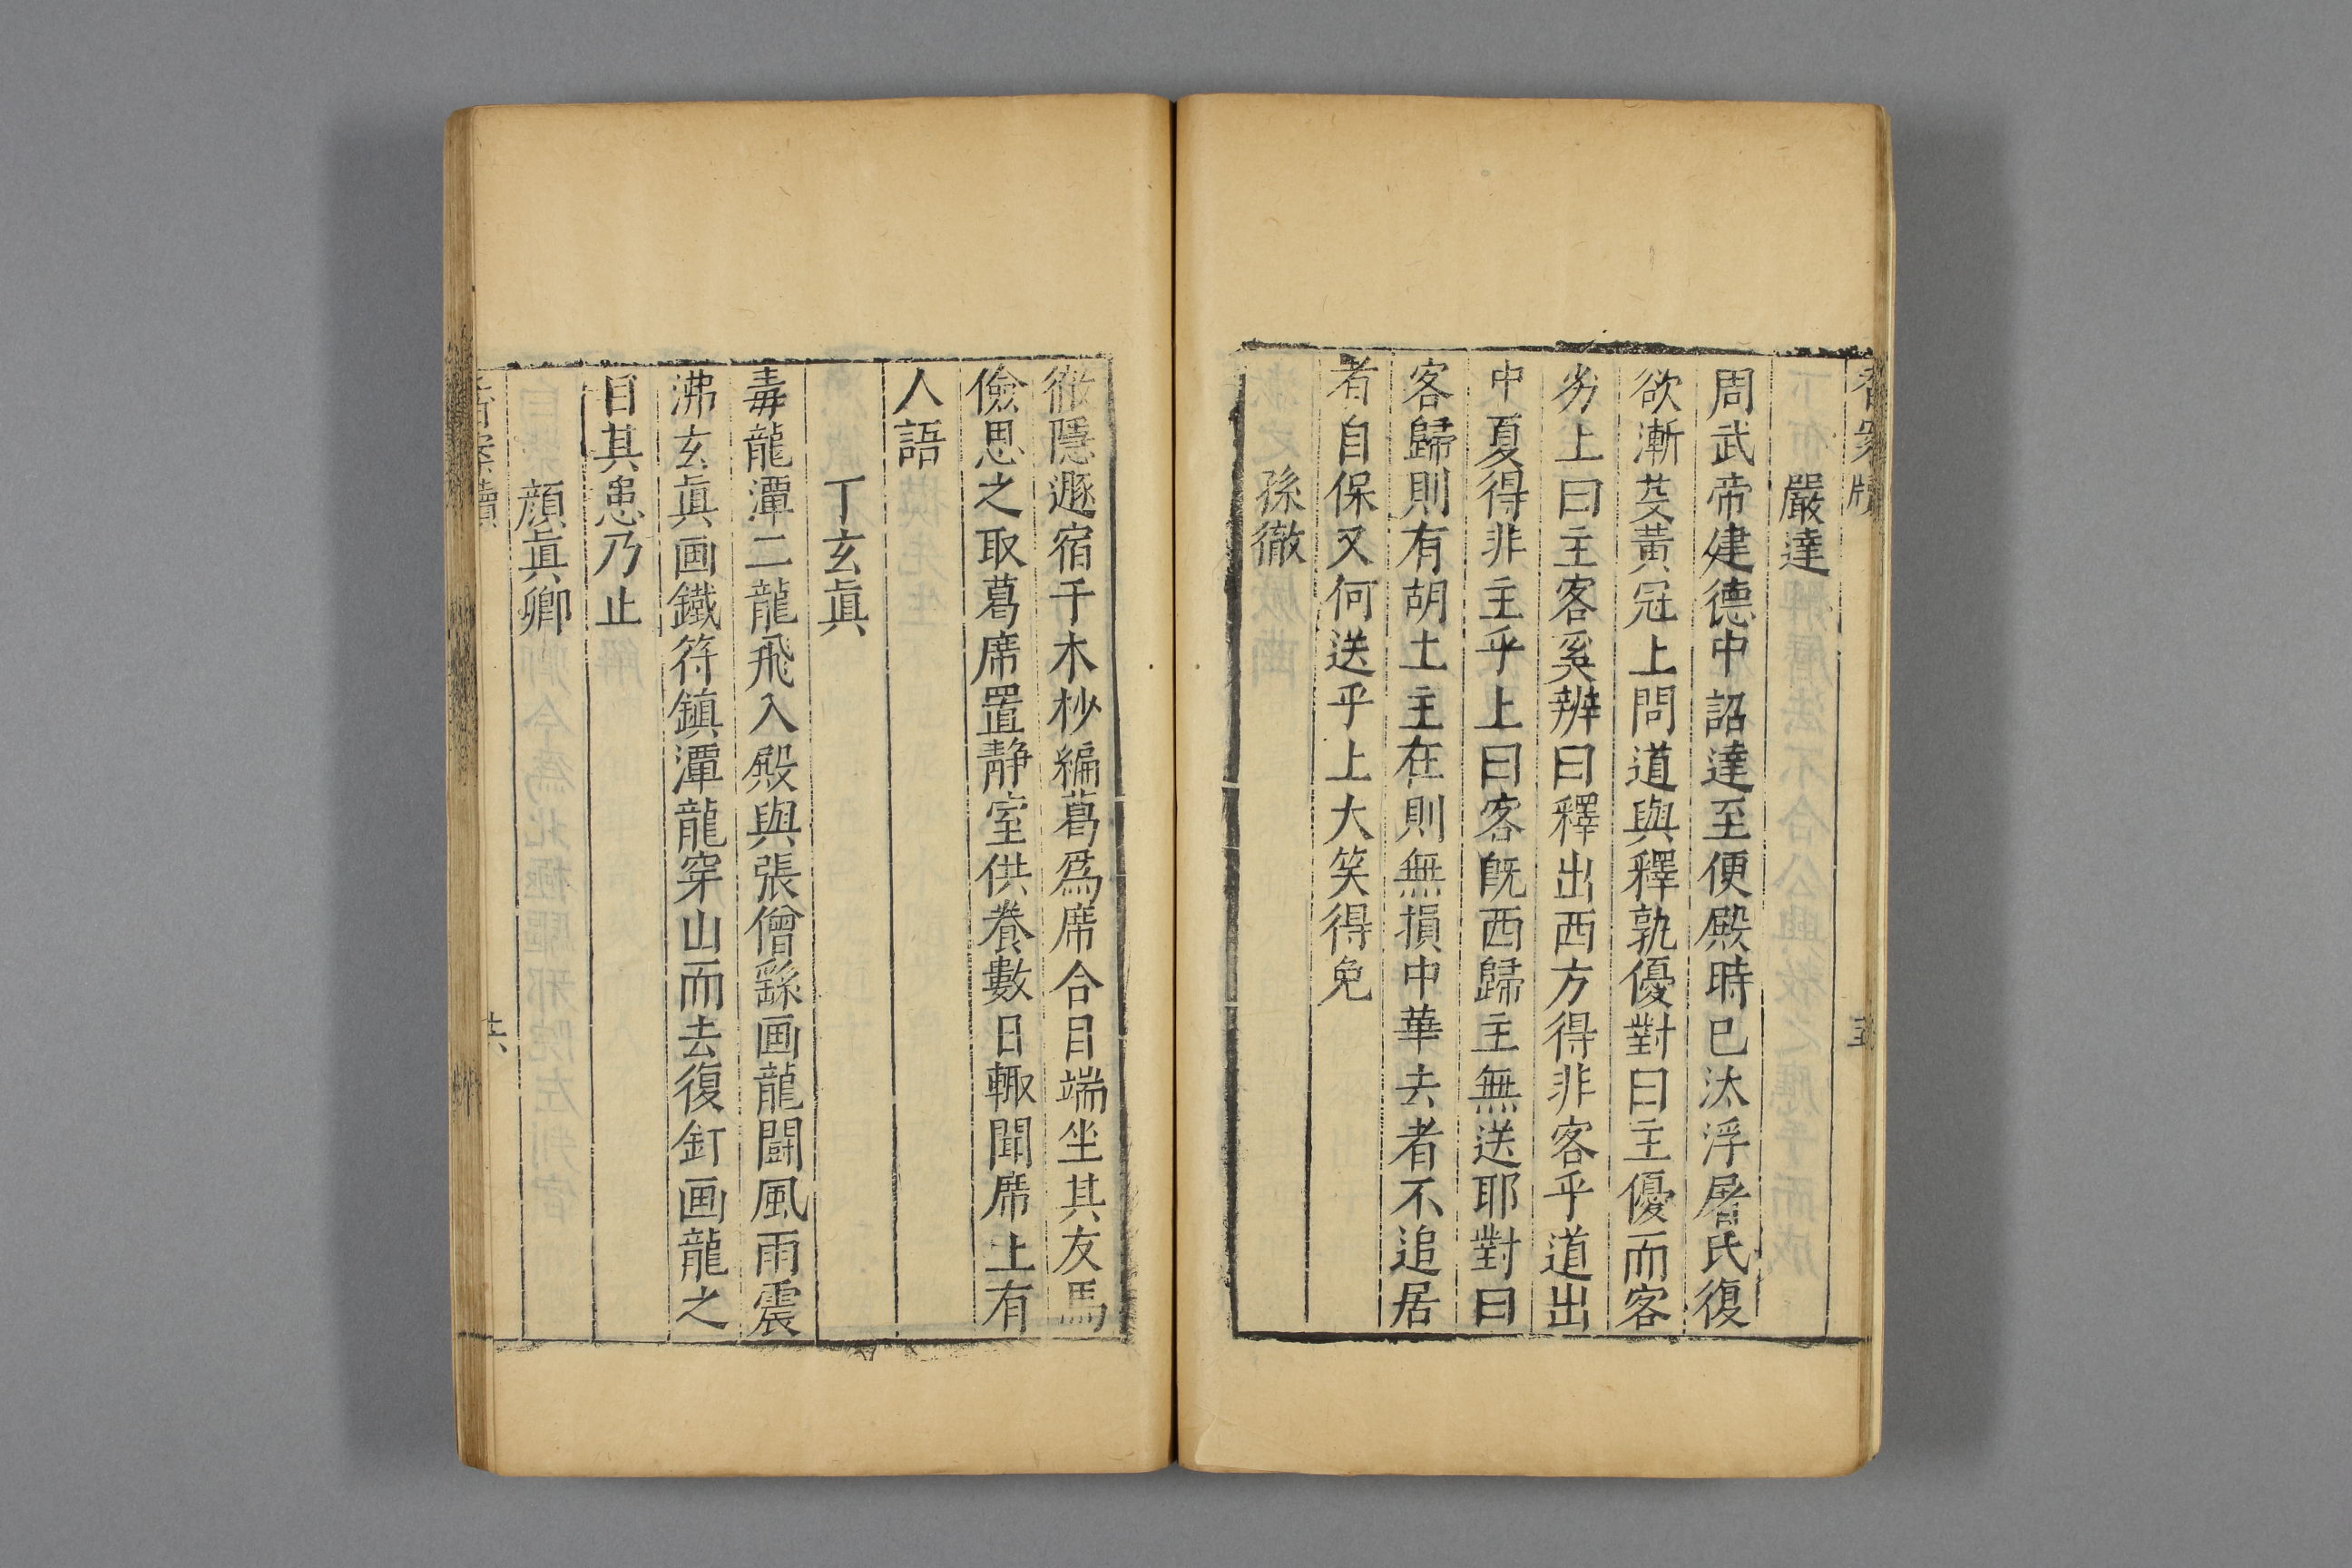 嚴達
周武帝建德中詔達至便殿時巳汰浮屠氏復
欲漸芟黃冠上問道與釋孰優對曰主優而客
劣上曰主客奚辨曰釋出西方得非客乎道出
中夏得非主乎上曰客旣西歸主無送耶對曰
客歸則有胡土主在則無損中華去者不追居
者自保又何送乎上大笑得免
孫徹
徹隱遯宿千木杪編葛爲席合目端坐其友馬
儉思之取葛席置靜室供養數日輙聞席上有
人語
丁玄眞
毒龍潭二龍飛入殿與張僧繇画龍鬪風雨震
沸玄眞画鐵符鎮潭龍穿山而去復釘画龍之
目其患乃止
顔眞卿